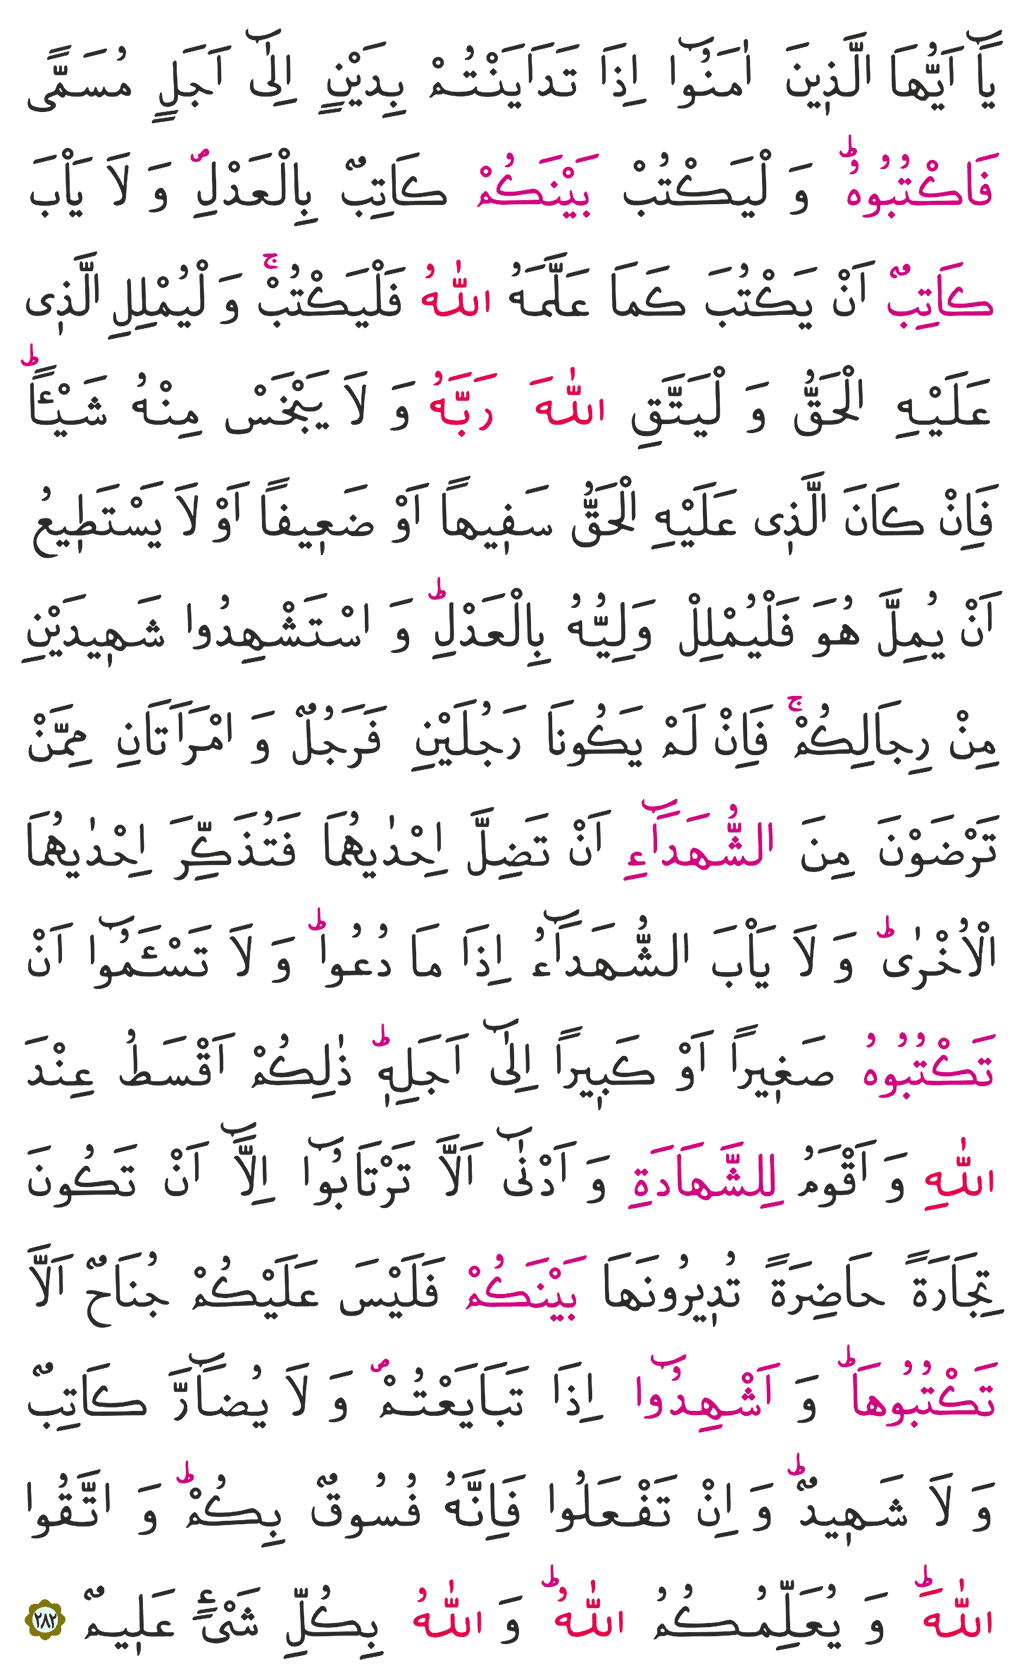 يَٓا اَيُّهَا الَّذ۪ينَ اٰمَنُٓوا اِذَا تَدَايَنْتُمْ بِدَيْنٍ اِلٰٓى اَجَلٍ مُسَمًّى
فَاكْتُبُوهُۜ وَ لْيَكْتُبْ بَيْنَكُمْ كَاتِبٌ بِالْعَدْلِۖ وَ لَا يَأْبَ
كَاتِبٌ اَنْ يَكْتُبَ كَمَا عَلَّمَهُ اللّٰهُ فَلْيَكْتُبْۚ وَ لْيُمْلِلِ الَّذ۪ى
عَلَيْهِ الْحَقُّ وَ لْيَتَّقِ اللّٰهَ رَبَّهُ وَ لَا يَبْخَسْ مِنْهُ شَيْـًٔاۜ
فَاِنْ كَانَ الَّذ۪ى عَلَيْهِ الْحَقُّ سَف۪يهاً اَوْ ضَع۪يفاً اَوْ لَا يَسْتَط۪يعُ
اَنْ يُمِلَّ هُوَ فَلْيُمْلِلْ وَلِيُّهُ بِالْعَدْلِۜ وَ اسْتَشْهِدُوا شَه۪يدَيْنِ
مِنْ رِجَالِكُمْۚ فَاِنْ لَمْ يَكُونَا رَجُلَيْنِ فَرَجُلٌ وَ امْرَاَتَانِ مِمَّنْ
تَرْضَوْنَ مِنَ الشُّهَدَٓاءِ اَنْ تَضِلَّ اِحْدٰيهُمَا فَتُذَكِّرَ اِحْدٰيهُمَا
الْاُخْرٰىۜ وَ لَا يَأْبَ الشُّهَدَٓاءُ اِذَا مَا دُعُواۜ وَ لَا تَسْـَٔمُٓوا اَنْ
تَكْتُبُوهُ صَغ۪يراً اَوْ كَب۪يراً اِلٰٓى اَجَلِه۪ۜ ذٰلِكُمْ اَقْسَطُ عِنْدَ
اللّٰهِ وَ اَقْوَمُ لِلشَّهَادَةِ وَ اَدْنٰٓى اَلَّا تَرْتَابُٓوا اِلَّٓا اَنْ تَكُونَ
تِجَارَةً حَاضِرَةً تُد۪يرُونَهَا بَيْنَكُمْ فَلَيْسَ عَلَيْكُمْ جُنَاحٌ اَلَّا
تَكْتُبُوهَاۜ وَ اَشْهِدُٓوا اِذَا تَبَايَعْتُمْۖ وَ لَا يُضَٓارَّ كَاتِبٌ
وَ لَا شَه۪يدٌۜ وَ اِنْ تَفْعَلُوا فَاِنَّهُ فُسُوقٌ بِكُمْۜ وَ اتَّقُوا
اللّٰهَۜ وَ يُعَلِّمُكُمُ اللّٰهُۜ وَ اللّٰهُ بِكُلِّ شَىْءٍ عَل۪يمٌ ﴿٢٨٢﴾